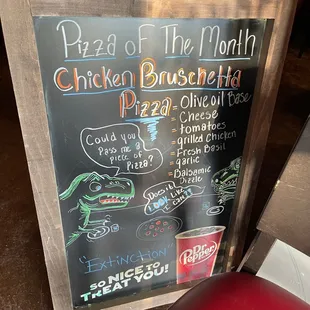 Pizza of The Month
Chicken Bruschetta
Pizza
- Olive oil Base
- Cheese
- tomatoes
- grilled Chicken
- Fresh Basil
- garlic
- Balsamic
Dizzle
Could you
Pass me a
piece of
Pizza?
Does it
LOOK Like
I can!?!
"Extinction"
Dr Pepper
SO NICE TO
TREAT YOU!